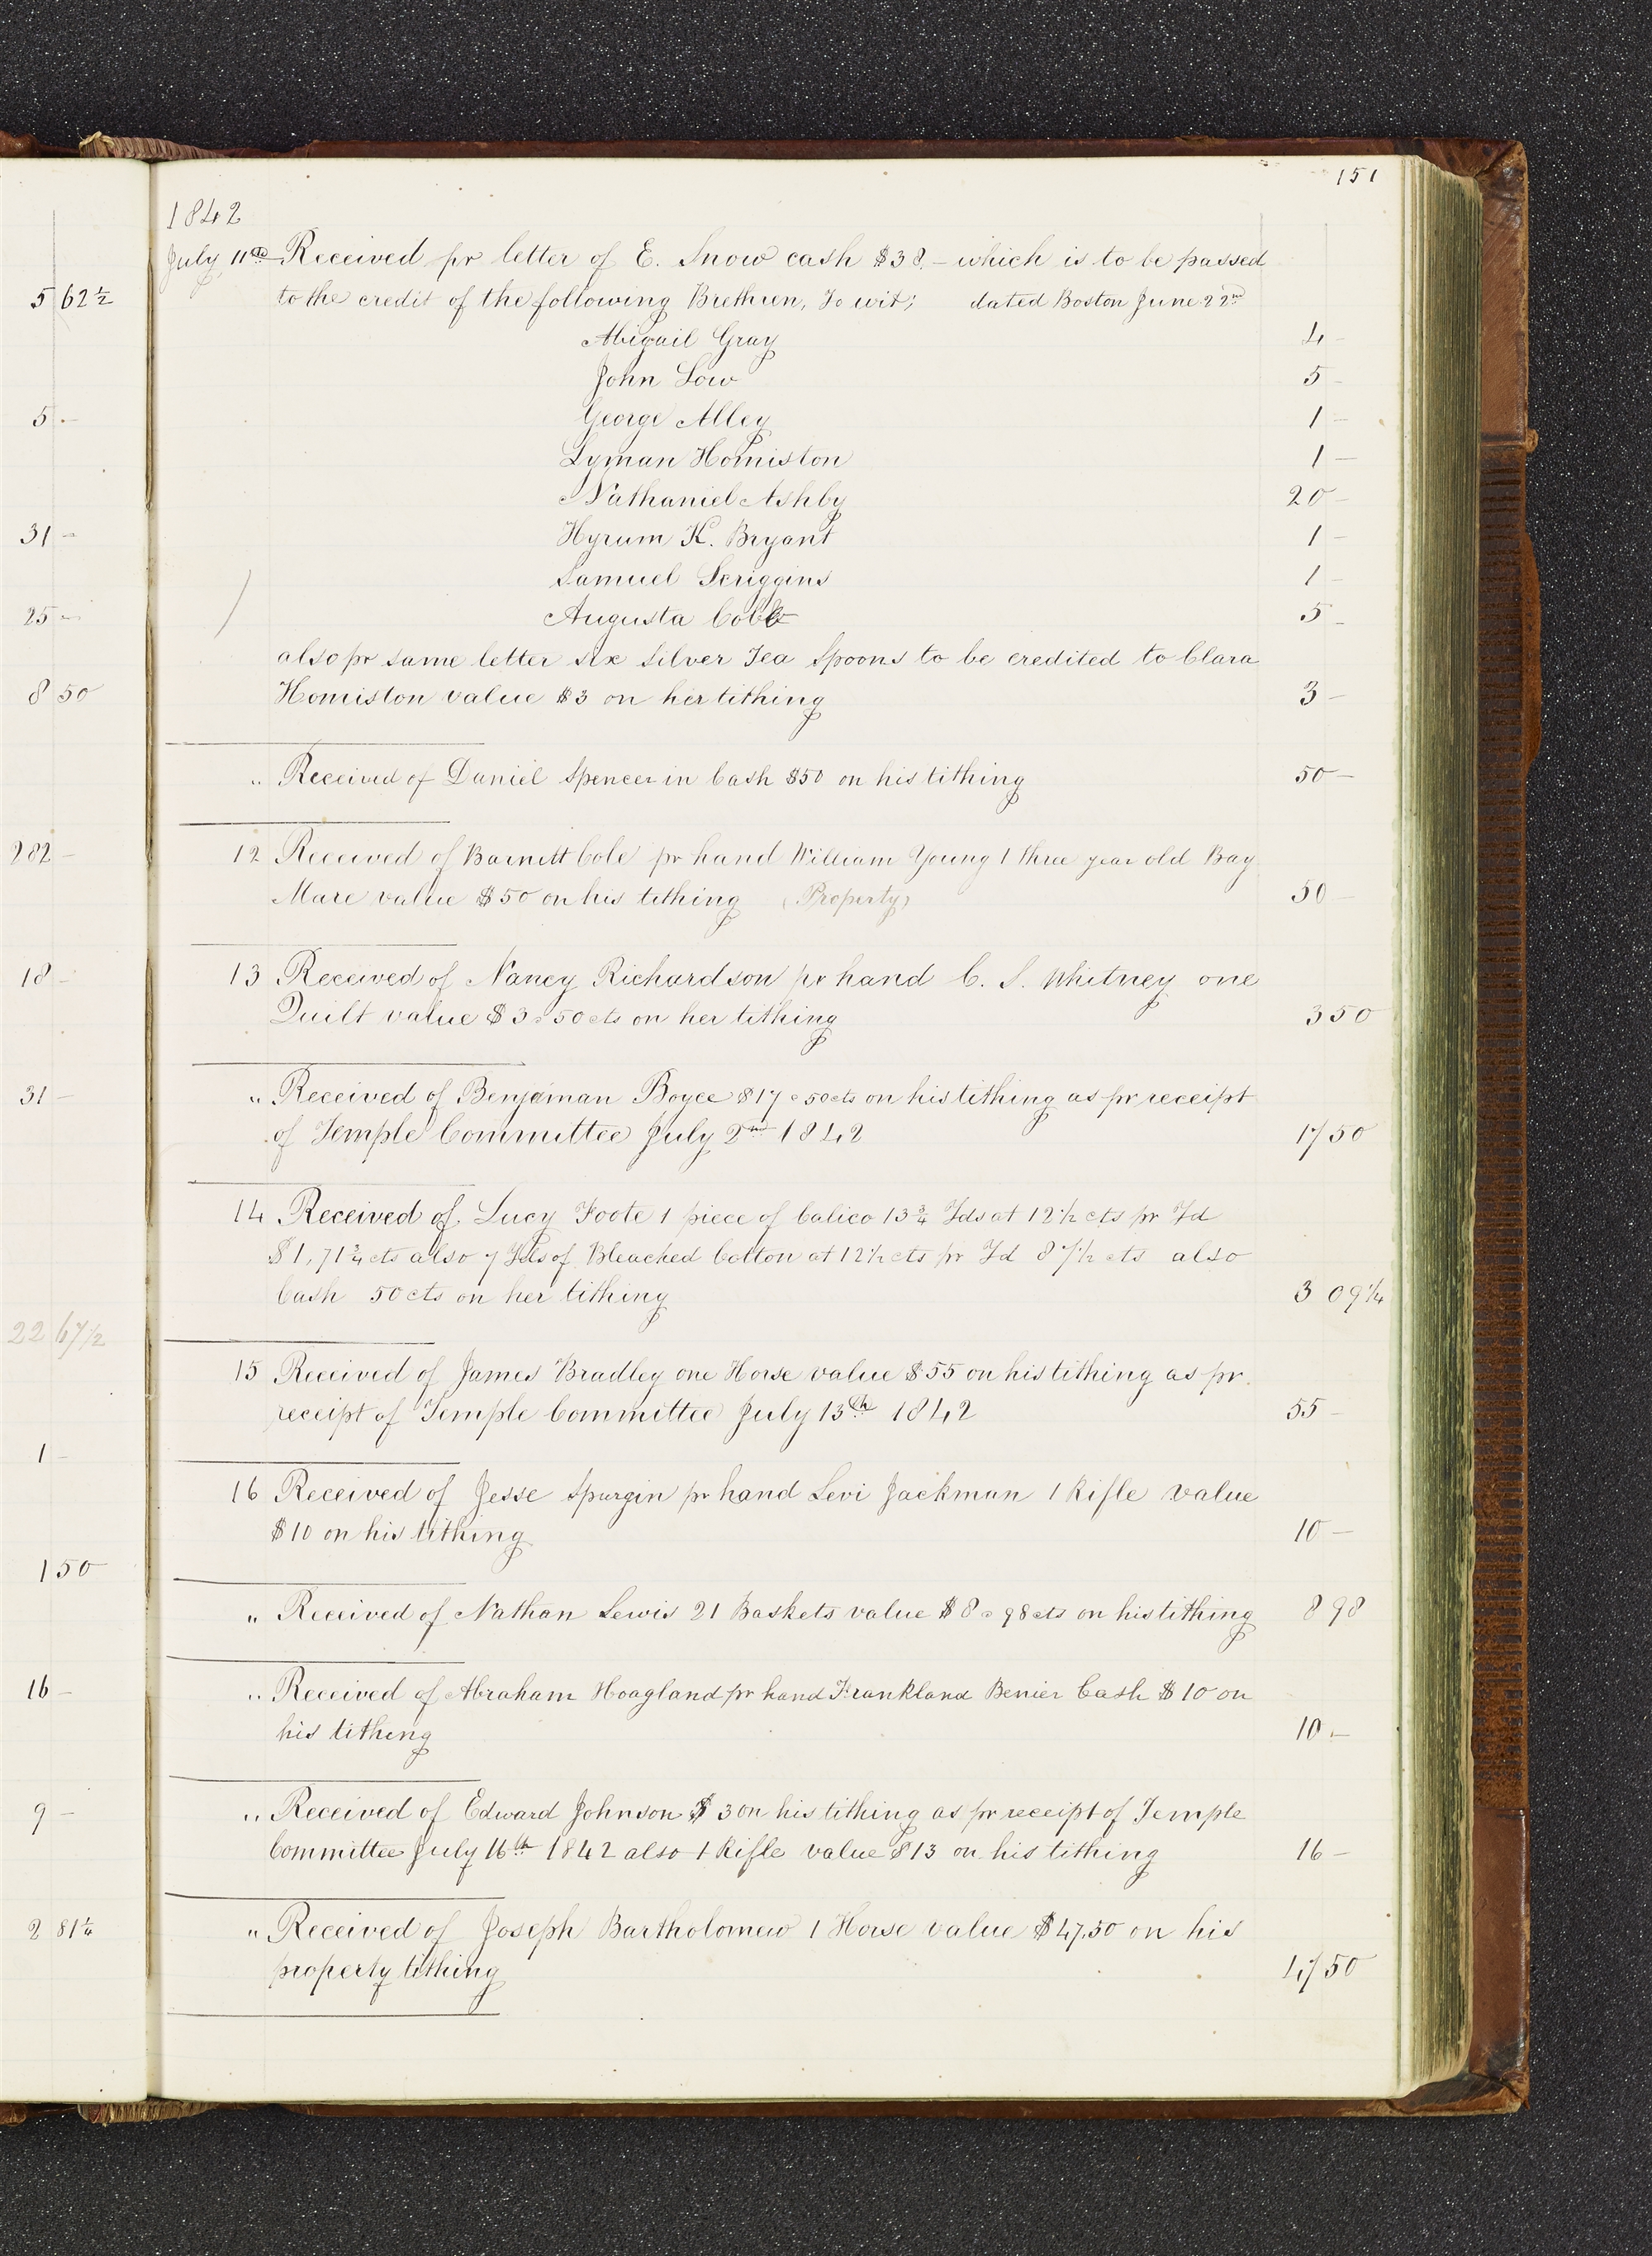 151
1842
5 62½
July 11th Received pr letter of E. Snow cash $38.– which is to be passed
to the credit of the following Brethren, To wit; dated Boston June 22nd
Abigail Gray 4 –
John Low 5 –
5 –
George Alley 1 –
Lyman Homiston 1 –
Nathaniel Ashby 20 –
31 –
Hyrum K. Bryant 1 –
Samuel Scriggins 1 –
25 –
Augusta Cobb 5 –
also pr same letter six silver Tea Spoons to be credited to Clara
8 50
Homiston value $3 on her tithing 3 –
" Received of Daniel Spencer in Cash $50 on his tithing 50 –
282 –
12 Received of Barnett Cole pr hand William Young 1 three year old Bay
Mare value $50 on his tithing (Property) 50 –
18 –
13 Received of Nancy Richardson pr hand C. S. Whitney one
Quilt value $3 = 50 cts on her tithing 3 50
31 –
" Received of Benjaman Boyce $17 = 50 cts on his tithing as pr receipt
of Temple Committee July 2nd 1842 17 50
14 Received of Lucy Foote 1 piece of Calico 13¾ Yds at 12½ cts pr Yd
$1,71¾ cts also 7 Yds of Bleached Cotton at 12½ cts pr Yd 87½ cts also
Cash 50 cts on her tithing 3 09¼
22 67½
15 Received of James Bradley one Horse value $55 on his tithing as pr.
receipt of Temple Committee July 13th 1842 55 –
1 –
16 Received of Jesse Spurgin pr hand Levi Jackman 1 Rifle value
$10 on his tithing 10 –
1 50
" Received of Nathan Lewis 21 Baskets value $8 = 98 cts on his tithing 8 98
16 –
" Received of Abraham Hoagland pr hand Frankland Benier Cash $10 on
his tithing 10 –
9 –
" Received of Edward Johnson $3 on his tithing as pr receipt of Temple
Committee July 16th 1842 also 1 Rifle value $13 on his tithing 16 –
2 81¼
" Received of Joseph Bartholomew 1 Horse value $47.50 on his
property tithing 47 50